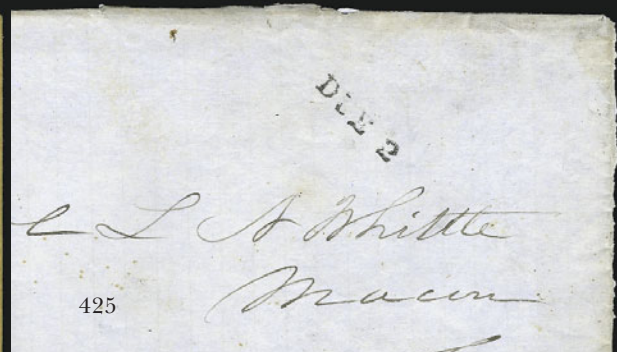 DUE 2
L N Whittle
Macon
425